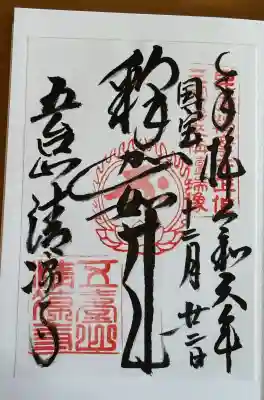 奉拝 令和元年
十二月廿二日
国宝
釈迦如来
五台山 清凉寺
五臺山
清凉寺